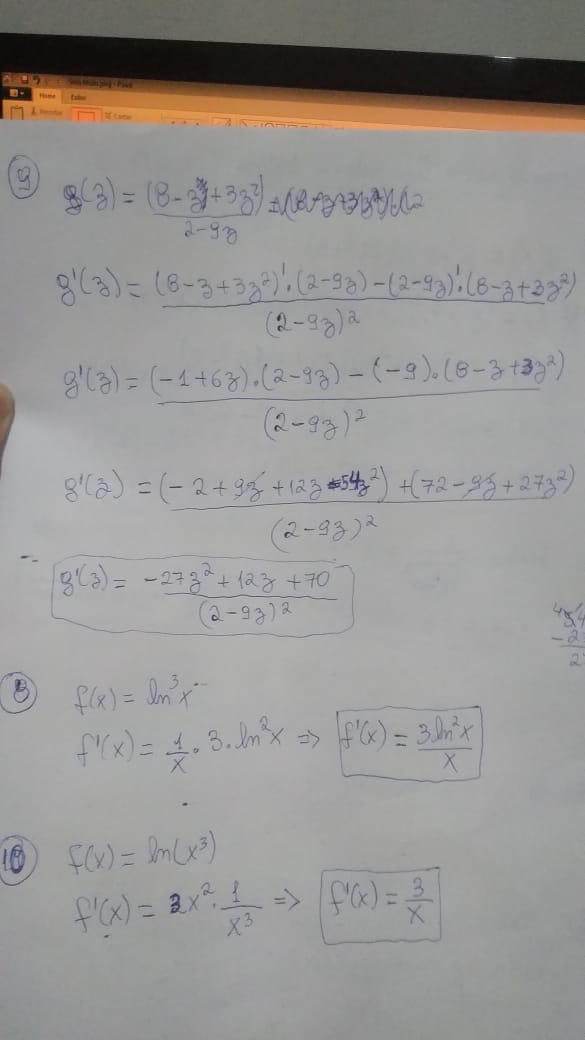 Home
9
g(z) = (8-z+3z²)
2-9z
g'(z) = (8-z+3z²)'.(2-9z)-(2-9z)'.(8-z+3z²)
(2-9z)²
g'(z) = (-1+6z).(2-9z) - (-9).(8-z+3z²)
(2-9z)²
g'(z) = (-2+9z+12z-54z²)+(72-9z+27z²)
(2-9z)²
g'(z) = -27z²+12z+70
(2-9z)²
8
f(x) = ln³x
f'(x) = 1/x . 3.ln²x => f'(x) = 3.ln²x/x
10
f(x) = ln(x³)
f'(x) = 3x².1/x³ => f'(x) = 3/x